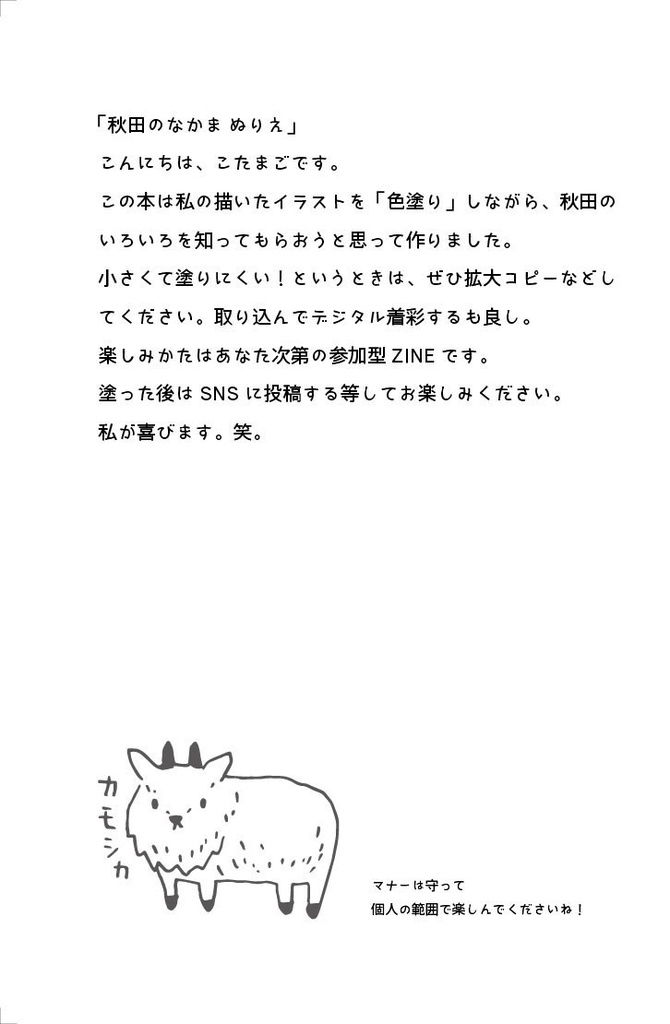 「秋田のなかま ぬりえ」
こんにちは、こたまごです。
この本は私の描いたイラストを「色塗り」しながら、秋田の
いろいろを知ってもらおうと思って作りました。
小さくて塗りにくい！というときは、ぜひ拡大コピーなどし
てください。取り込んでデジタル着彩するも良し。
楽しみかたはあなた次第の参加型 ZINE です。
塗った後は SNS に投稿する等してお楽しみください。
私が喜びます。笑。
カモシカ
マナーは守って
個人の範囲で楽しんでくださいね！